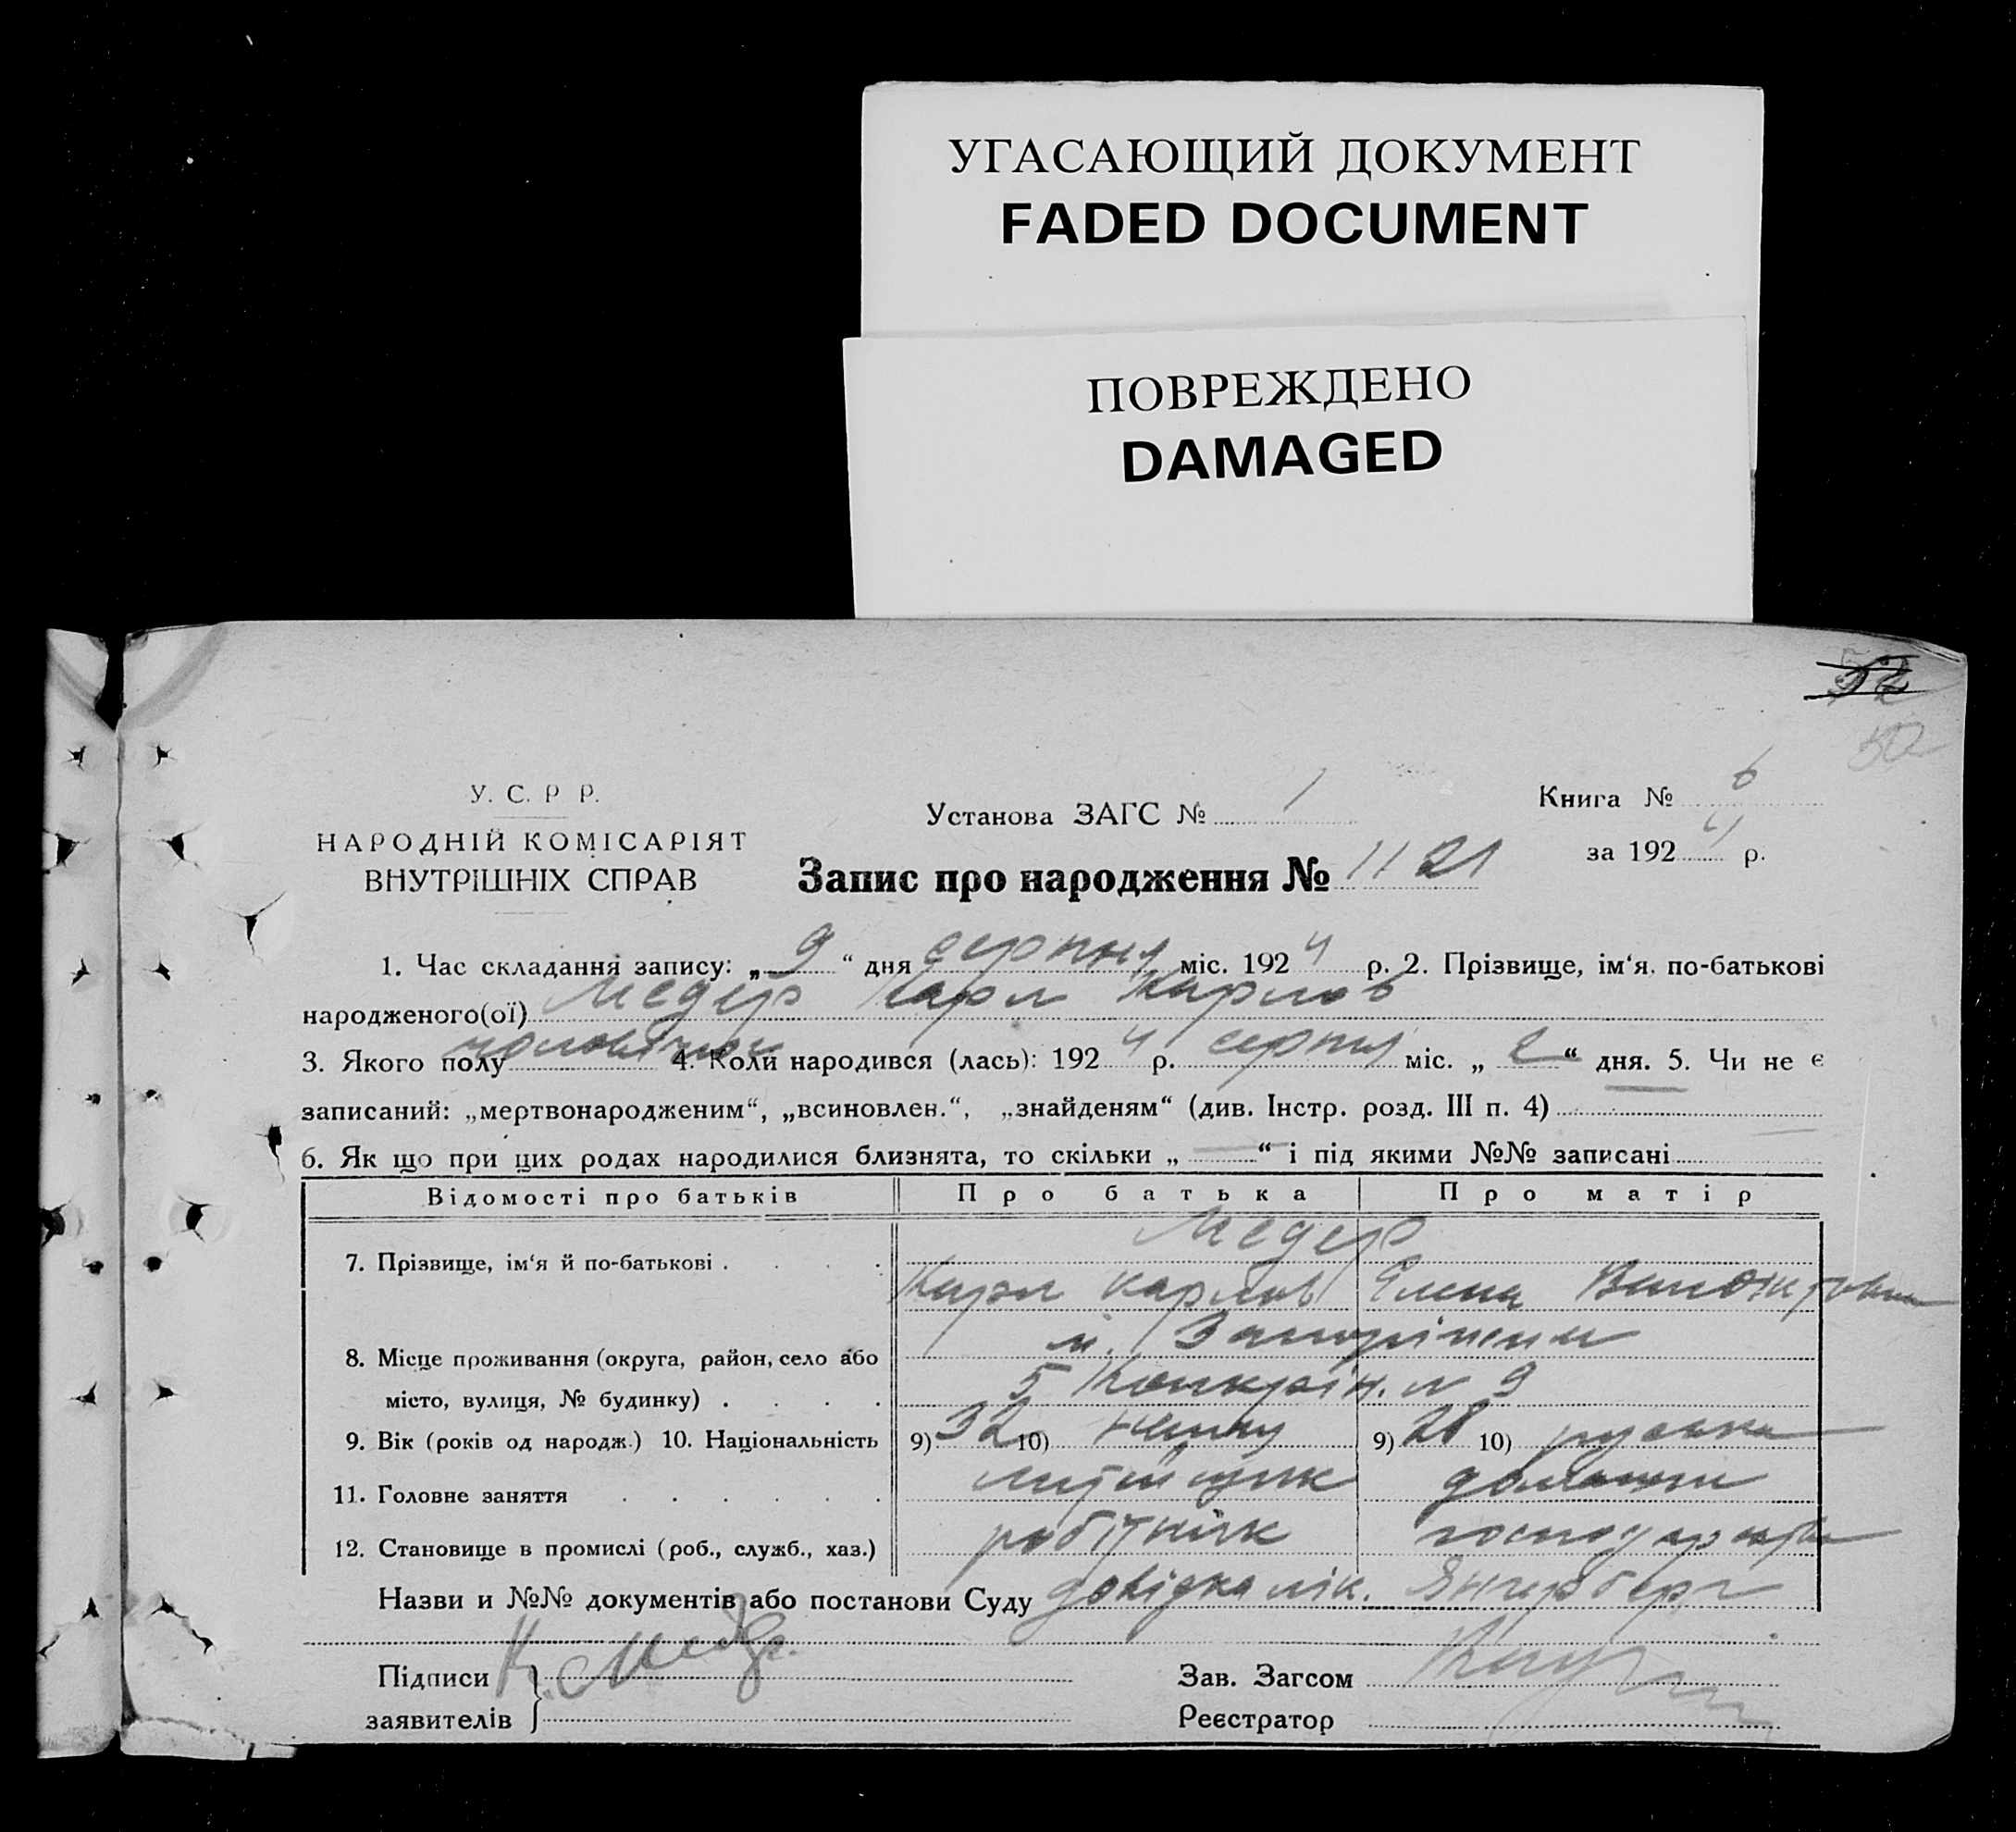 УГАСАЮЩИЙ ДОКУМЕНТ
FADED DOCUMENT
ПОВРЕЖДЕНО
DAMAGED
52
50
У. С. Р Р.
НАРОДНІЙ КОМІСАРІЯТ
ВНУТРІШНІХ СПРАВ
Установа ЗАГС № 1
Книга № 6
за 1924 р.
Запис про народження № 1121
1. Час складання запису: „ 9 “ дня серпня міс. 1924 р. 2. Прізвище, ім‘я, по-батькові
народженого(ої) Медер Карл Карлов
3. Якого полу чоловічої 4. Коли народився (лась): 1924 р. серпня міс. „ 2 “ дня. 5. Чи не є
записаний: „мертвонародженим“, „всиновлен.“, „знайденям“ (див. Інстр. розд. III п. 4)
6. Як що при цих родах народилися близнята, то скільки „ — “ і під якими №№ записані
Відомості про батьків Про батька Про матір
Медер
7. Прізвище, ім‘я й по-батькові . Карл Карлов Елена
8. Місце проживання (округа, район, село або м.
місто, вулиця, № будинку) . 5 № 9
9. Вік (років од народж.) 10. Національність 9) 32 10) німец 9) 28 10) руська
11. Головне заняття
12. Становище в промислі (роб., служб., хаз.) робітник
Назви и №№ документів або постанови Суду довідка лік.
Підписи К. Медер
заявителів
Зав. Загсом
Реєстратор